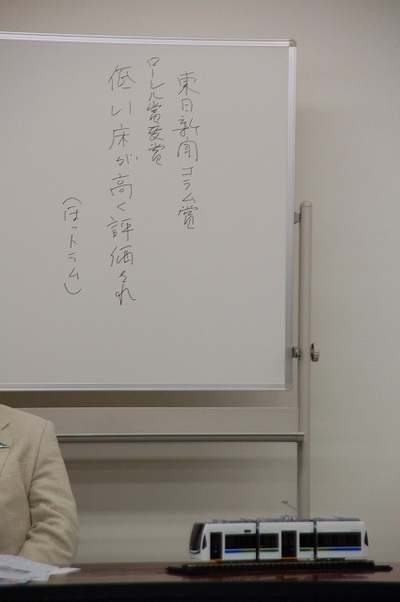 東日新聞コラム賞
ローレル賞受賞
低い床が高く評価され
(ほっトラム)